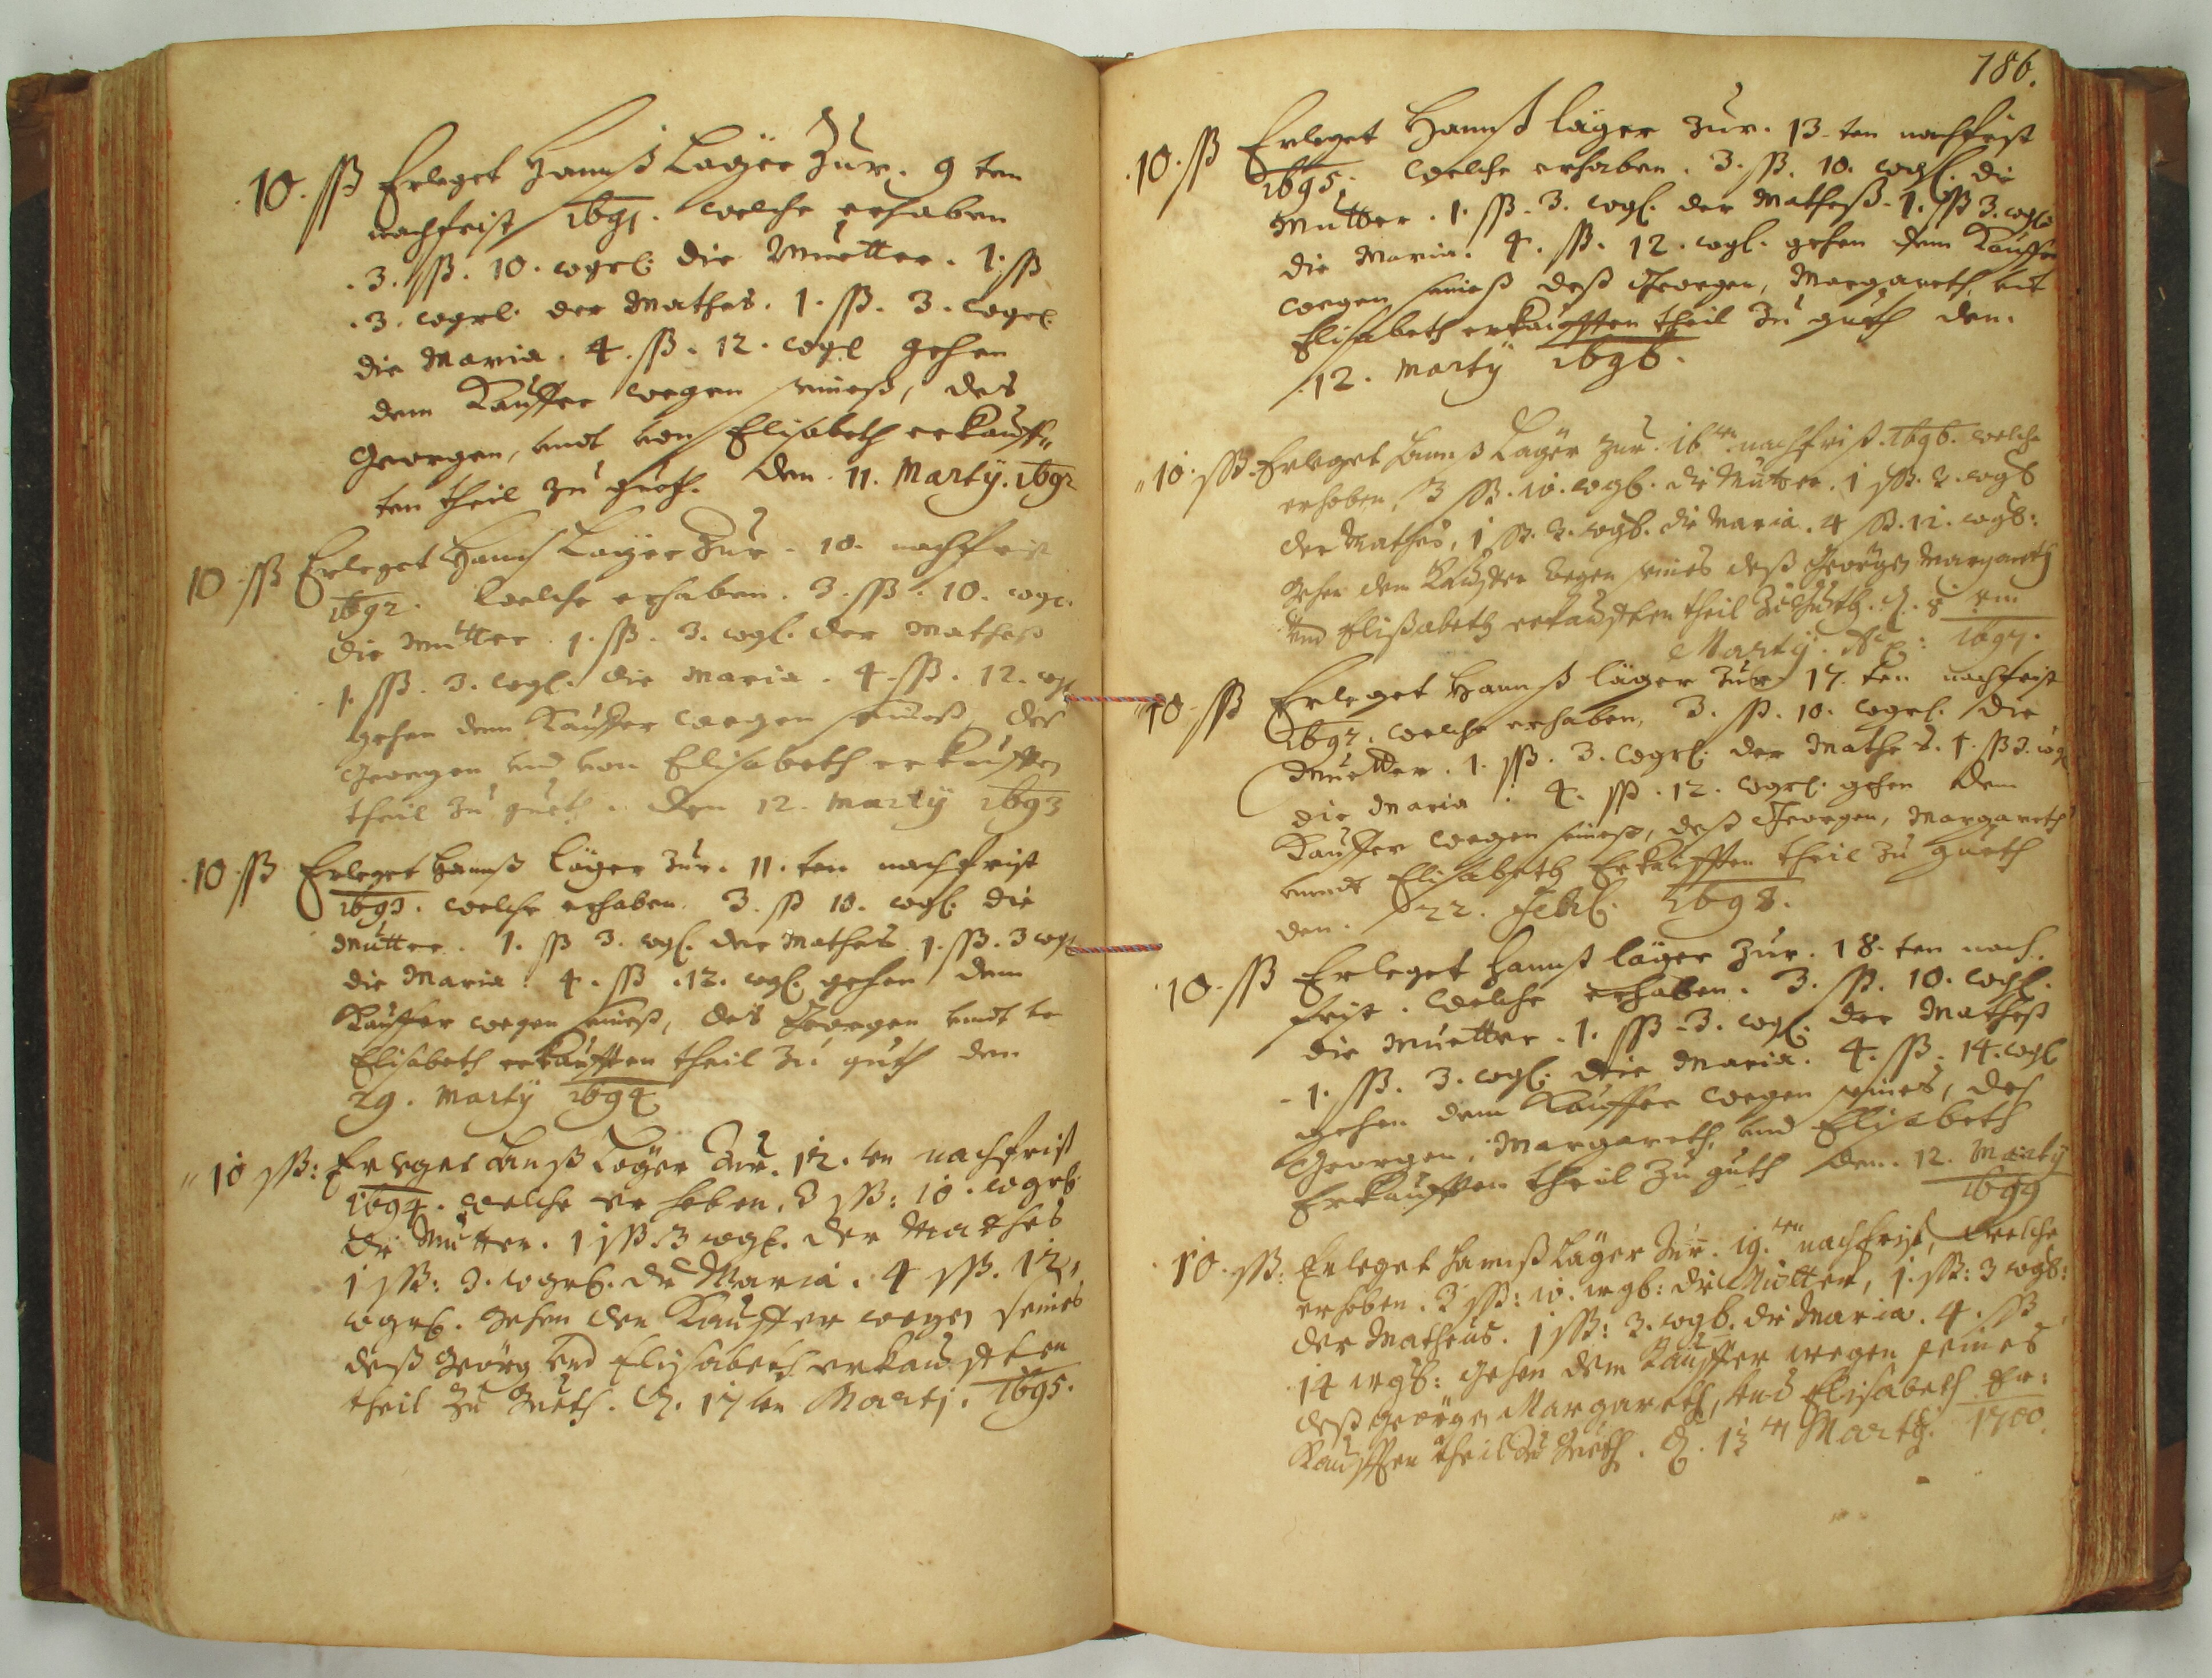 10. ßß Erleget Hannß Layer Zur. 9 ten
nachfrist 1691. welche erhaben
.3. ßß. 10. wgrl. die Muetter. 1. ßß
.3. wgrl. der Mathes. 1. ßß. 3. wgrl.
die Maria. 4. ßß. 12. wgl gehen
dem Kauffer wegen seineß, des
Georgen, undt von Elisabeth erkauff„
ten theil zu gueth. den. 11. Marty. 1692
10. ßß Erleget Hannß Layer Zur. 10. nachfrist
1692. welche erhaben. 3. ßß. 10. wgl.
die Mutter. 1. ßß. 3. wgl. der Matheß
1. ßß. 3. wgl. die Maria. 4. ßß. 12. wgl
gehen dem Kauffer wegen seineß, des
Georgen und von Elisabeth erkaufften
theil zu gueth. den 12. Marty 1693
.10. ßß Erleget Hannß läyer Zur. 11. ten nachfrist
1693. welche erhaben. 3. ßß 10. wgl. die
Mutter. 1. ßß 3. wgl. der Mathes 1. ßß. 3 wgl
die Maria. 4. ßß .12. wgl. gehen dem
Kauffer wegen seineß, des Georgen undt
Elisabeth erkaufften theil zu guth den
29. Marty 1694
„ 10 ßß: Erleget Hanß Layer Zur. 12. ten nachfrist
1694. welche er heben, 3 ßß: 10. wgrl.
die Mutter. 1 ßß. 3 wgl. der Mathes
1 ßß: 3. wgrl. die Maria. 4 ßß. 12,
wgrl. gehen den Kauffer wegen seines
deß Georg und Elisabeth erkaufften
theil zu Gueth. d. 17 ten Martj. 1695.
186.
.10. ßß Erleget Hannß läyer Zur. 13. ten nachfrist
1695. welche erhoben. 3. ßß. 10. wgl. die
Mutter. 1. ßß. 3. wgl. der Matheß. 1. ßß 3. wgl.
die Maria. 4. ßß. 12. wgl. gehen dem Kauffer
wegen seineß deß Georgen, Margareth, undt
Elisabeth erkaufften theil zu guth den.
.12. Marty 1696.
„10. ßß. Erleget Hannß Layer zur. 16ten. nachfrist. 1696. welche
erhoben, 3 ßß. 10. wgl. die Mutter. 1 ßß. 3. wgl
der Mathes, 1 ßß. 3. wgl. die Maria. 4 ßß. 12. wgl:
gehen dem Kauffer wegen seines deß Georgen Margareth
und Elisabeth erkaufften theil zu Gueth. d. 8
Marty. A: 1697.
10. ßß Erleget Hannß läyer zur 17. ten nachfrist
1697. welche erhaben, 3. ßß. 10. wgrl. die
Muetter. 1. ßß. 3. wgrl. der Mathes. 1. ßß 3. wgl
die Maria. 4. ßß. 12. wgrl. gehen dem
Kauffer wegen seineß, deß Georgen, Margareth
unndt Elisabeth Erkaufften theil zu gueth
den. 22. Febl. 1698.
10. ßß Erleget Hannß läyer zur. 18. ten nach.
frist. welche erhaben. 3. ßß. 10. wgl.
die Muetter. 1. ßß. 3. wgl. der Matheß
- 1. ßß. 3. wgl. die Maria. 4. ßß. 14. wgl
gehen dem Kauffer wegen seines, des
Georgen, Margareth, und Elisabeth
Erkaufften theil zu guth den. 12. Marty
1699
10. ßß: Erleget Hannß Läyer Zur. 19. ten nachfrist, welche
erhoben. 3 ßß: 10. wgl: die Mutter, 1. ßß: 3 wgl:
der Matheus. 1 ßß: 3. wgl. die Maria. 4. ßß
14 wgl: gehen dem Kauffer wegen seines
deß Georgen Margareth, und Elisabeth Er:
Kaufften theil zu Gueth. d. 13 ten Marty. 1700.